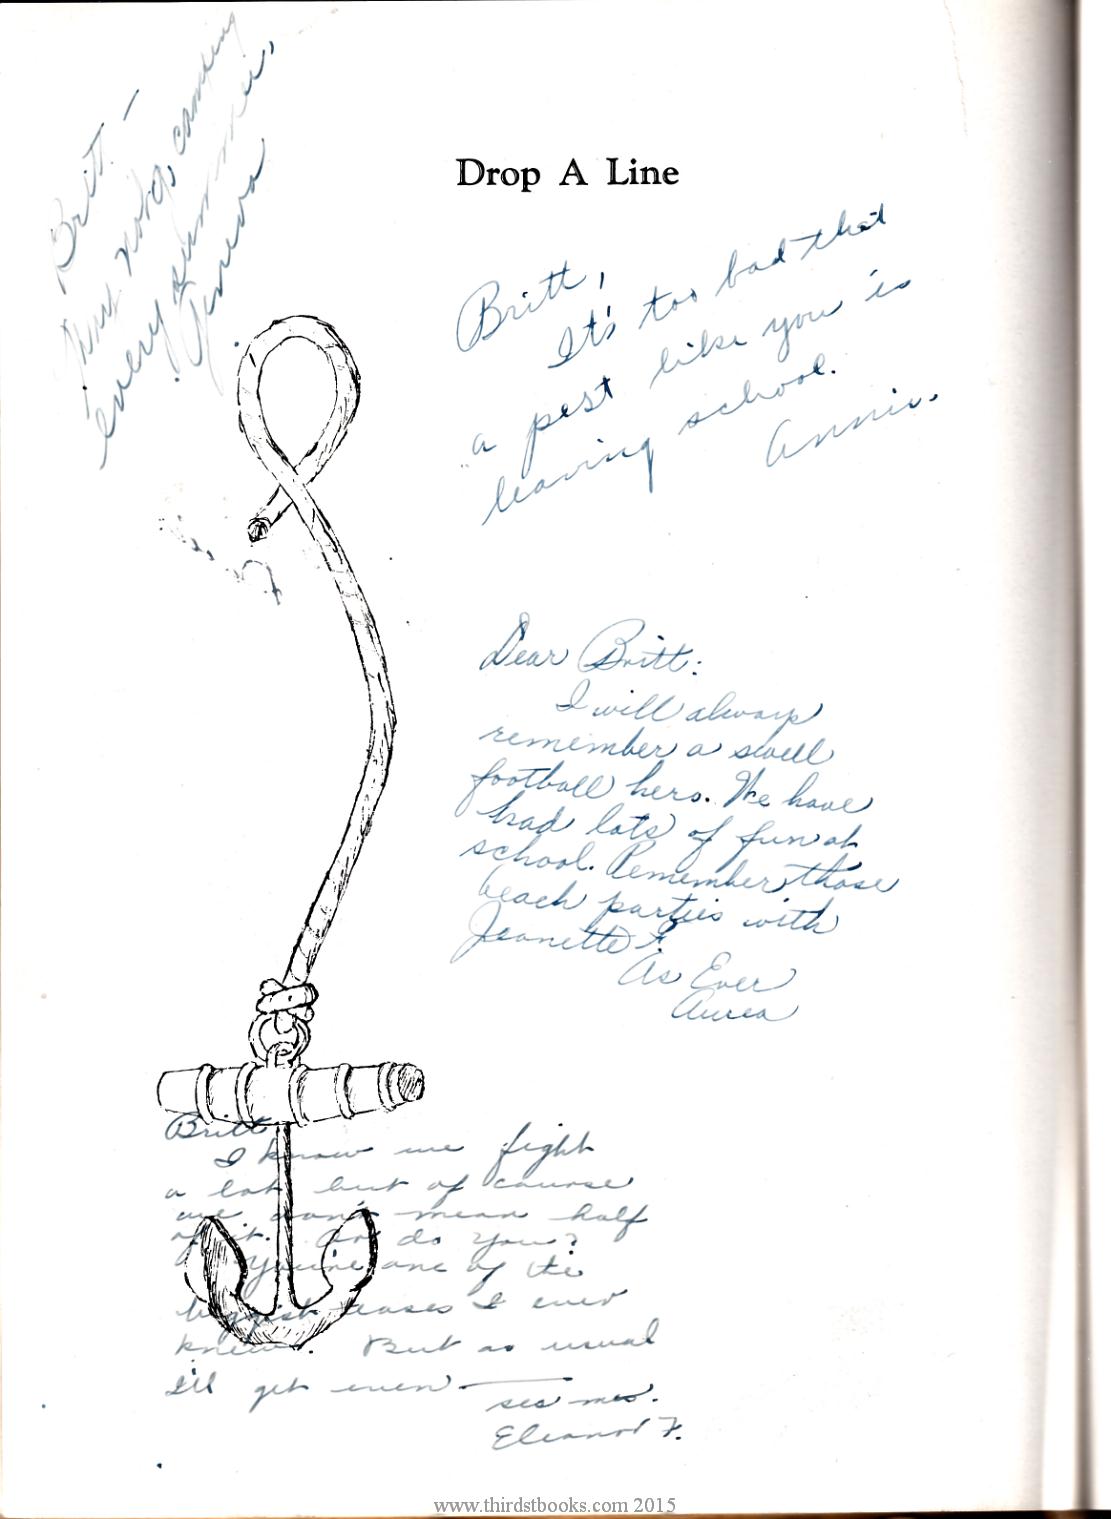 Drop A Line
Britt –
every summer,
Britt,
It's too bad that
a pest like you is
leaving school.
Annie.
Dear Britt:
I will always
remember a swell
football hero. We have
had lots of fun at
school. Remember those
beach parties with
Jeanette F.
As Ever
Aurea
Britt
I know we fight
a lot but of course
we don't mean half
of it. Or do you?
You're one of the
biggest teases I ever
knew. But as usual
I'll get even
ses me.
Eleanor F.
www.thirdstbooks.com 2015